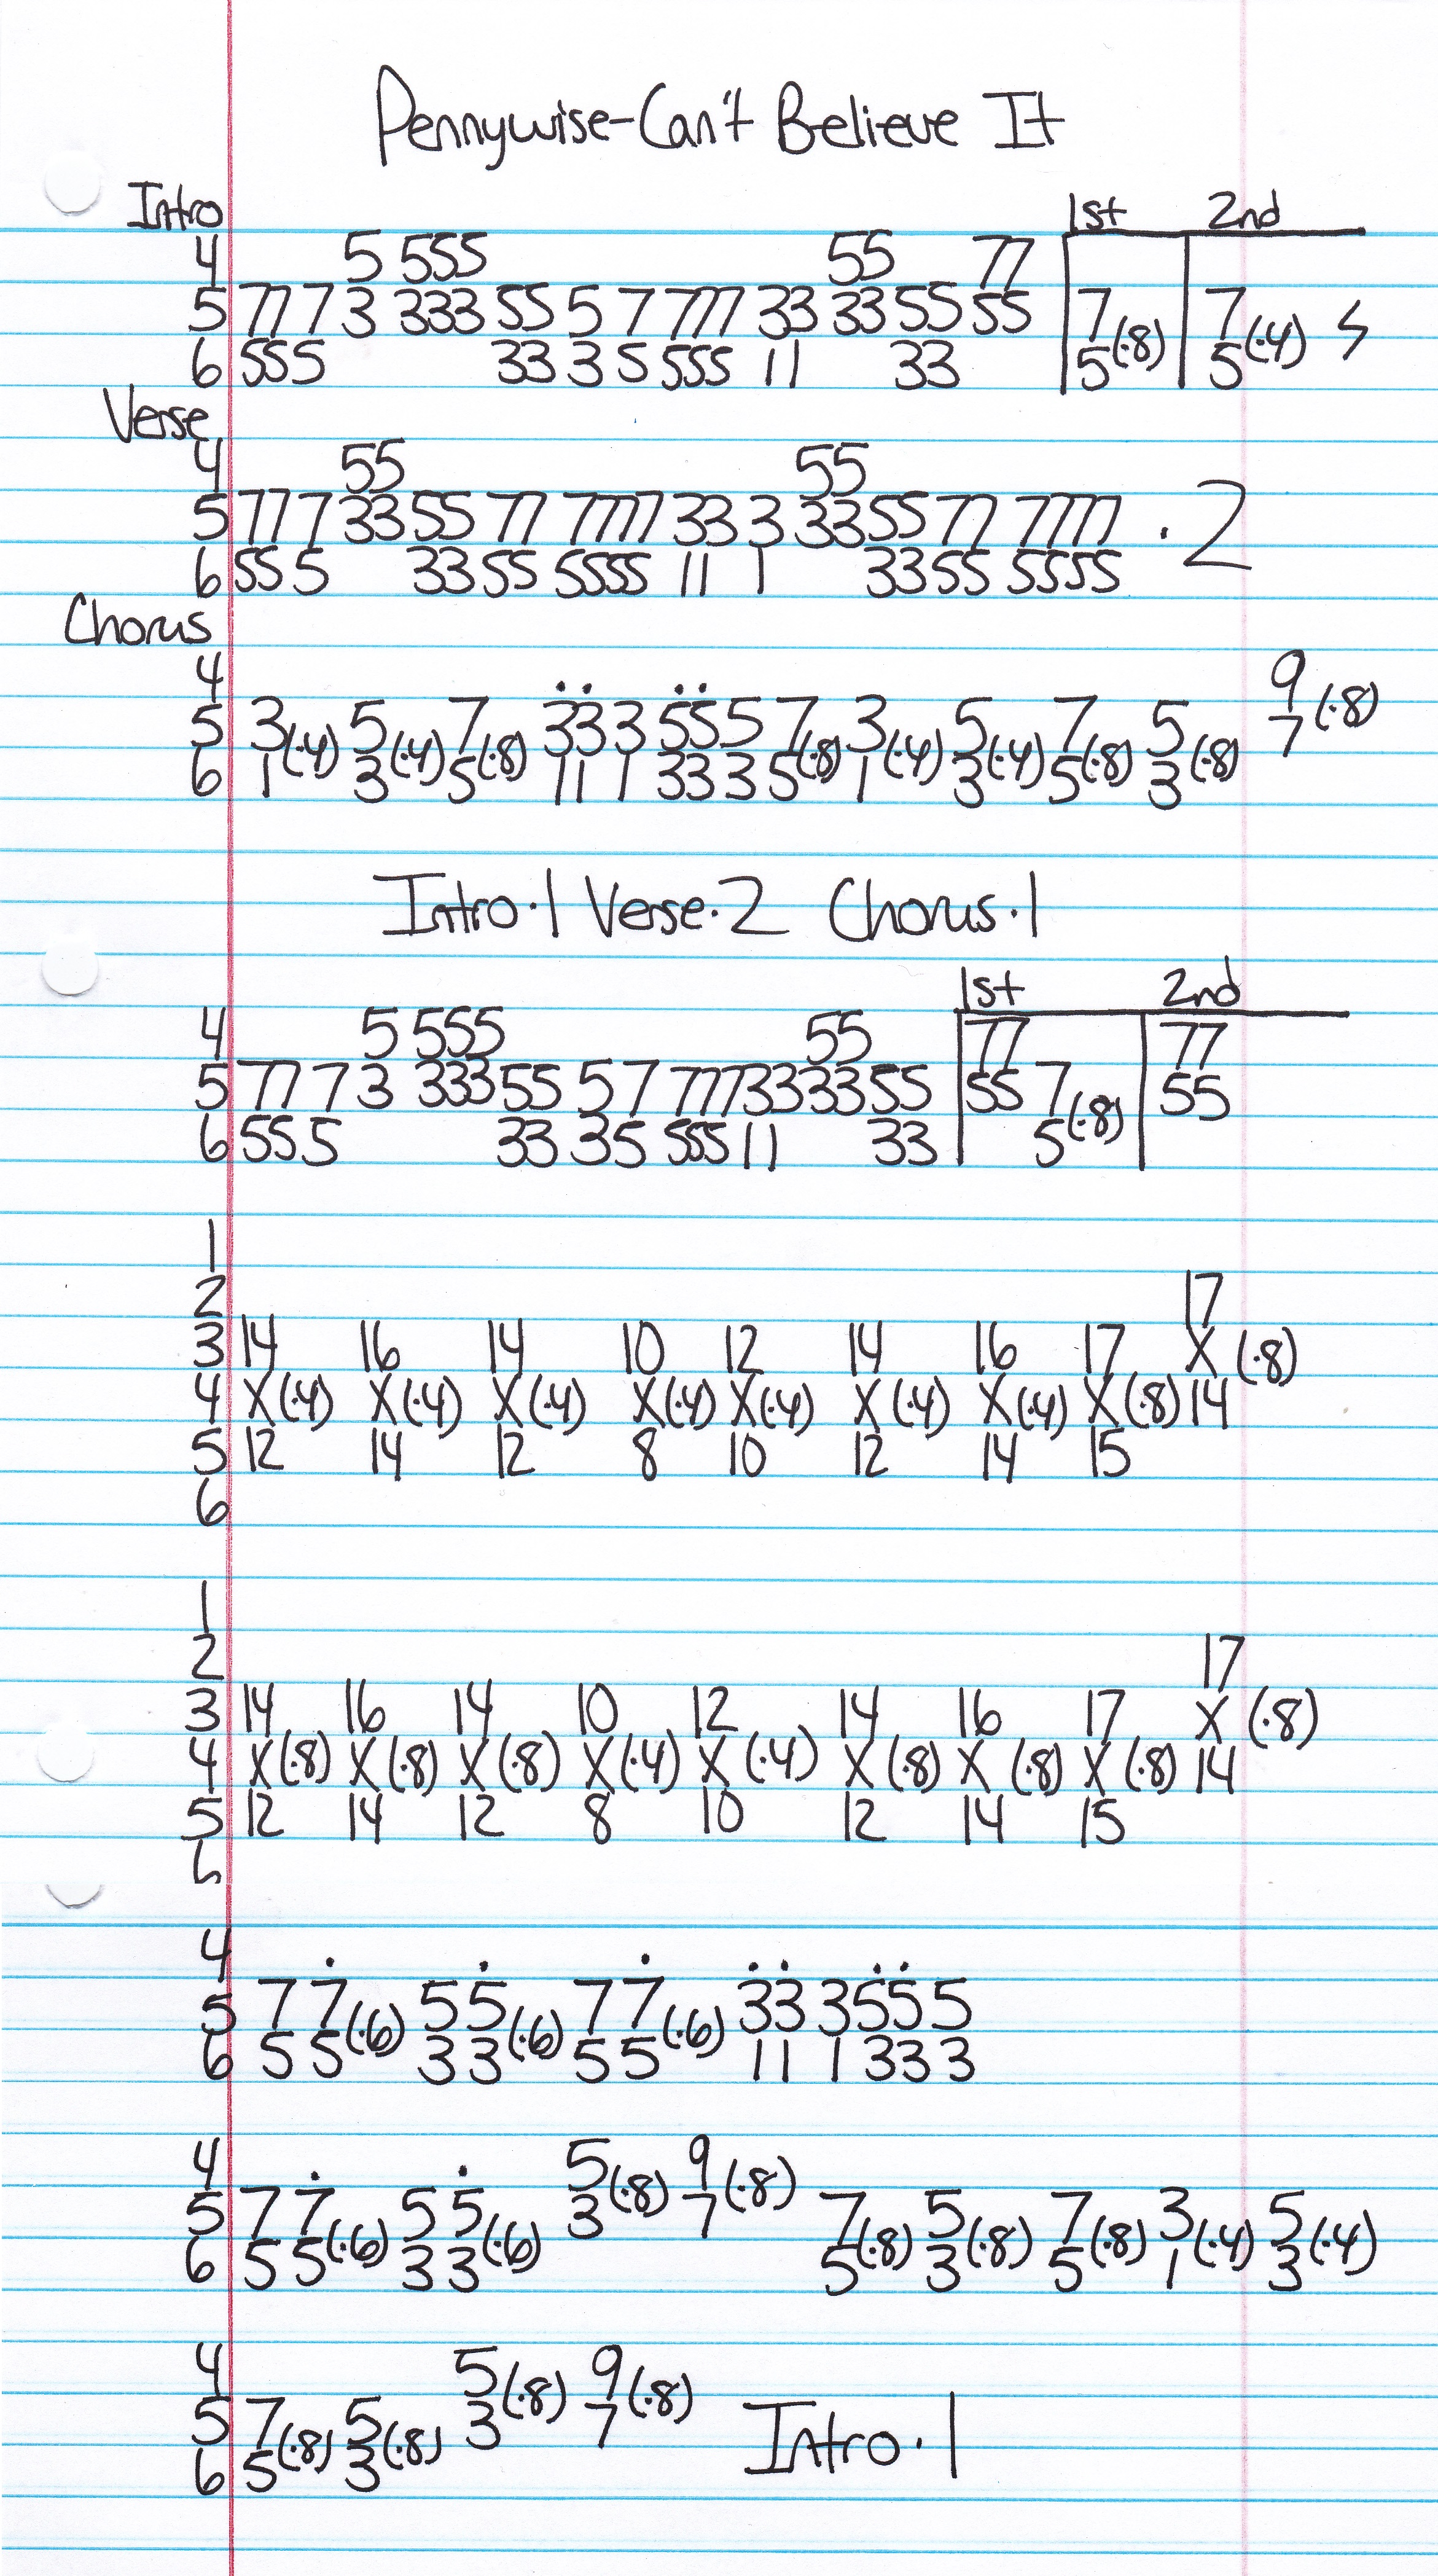 Pennywise-Can't Believe It
Intro 1st 2nd
4 5 555 55 77
5 777 7 3 333 55 5 7 777 33 33 55 55 7(·8) 7(·4) 𝄽
6 555 5 33 3 5 555 11 33 5 5
Verse
4 55 55
5 777 7 33 55 77 7777 33 3 33 55 77 7777 ·2
6 55 5 33 55 5555 11 1 33 55 5555
Chorus
4 9
5 3(·4) 5(·4) 7(·8) 33 3 55 5 7(·8) 3(·4) 5(·4) 7(·8) 5(·8) 7(·8)
6 1 3 5 11 1 33 3 5 1 3 5 3
Intro·1 Verse·2 Chorus·1
1st 2nd
4 5 555 55 77 77
5 777 7 3 333 55 5 7 777 33 33 55 55 7(·8) 55
6 55 5 33 3 5 555 11 33 5
1
2 17
3 14 16 14 10 12 14 16 17 X (·8)
4 X(·4) X(·4) X(·4) X(·4) X(·4) X(·4) X(·4) X(·8) 14
5 12 14 12 8 10 12 14 15
6
1
2 17
3 14 16 14 10 12 14 16 17 X (·8)
4 X(·8) X(·8) X(·8) X(·4) X(·4) X(·8) X(·8) X(·8) 14
5 12 14 12 8 10 12 14 15
6
4
5 7 7(·6) 5 5(·6) 7 7(·6) 33 3 55 5
6 5 5 3 3 5 5 11 1 33 3
4 5(·8) 9(·8)
5 7 7(·6) 5 5(·6) 3 7 7(·8) 5(·8) 7(·8) 3(·4) 5(·4)
6 5 5 3 3 5 3 5 1 3
4 5(·8) 9(·8)
5 7(·8) 5(·8) 3 7 Intro·1
6 5 3